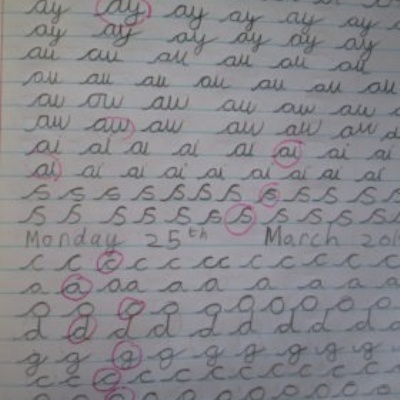 ay ay ay ay ay ay ay
ay ay ay ay ay ay
au au au au au au
au au au au au au au
aw ow aw aw aw aw
aw aw aw aw aw aw
ai ai ai ai ai ai ai ai
ai ai ai ai ai ai ai ai ai
s s s s s s s s s s s s
s s s s s s s s s s s s
Monday 25th March 20
c c c c c cc c c c c c
a a a a a a a a a a
o o o o o o o o o o
d d d d d d d d d d
g g g g g g g g g
c c c c c c c c c c c